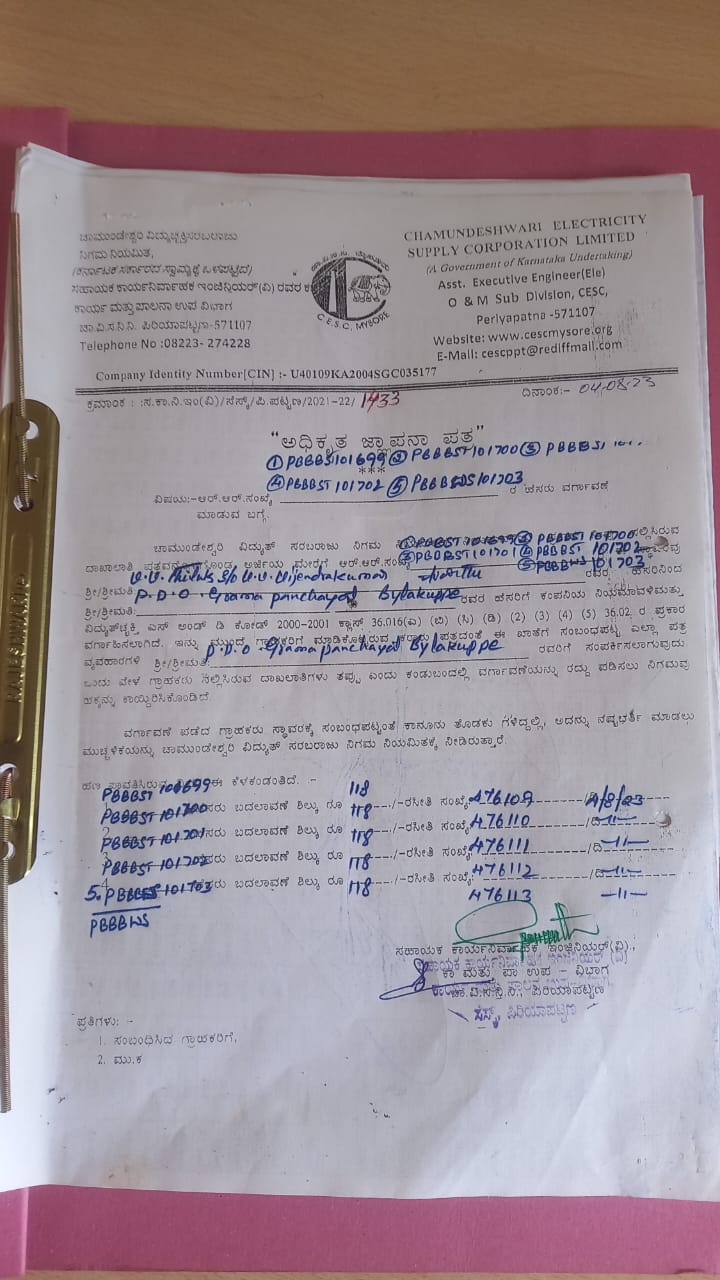 ಚಾಮುಂಡೇಶ್ವರಿ ವಿದ್ಯುಚ್ಛಕ್ತಿಸರಬರಾಜು
ನಿಗಮ ನಿಯಮಿತ,
(ಕರ್ನಾಟಕ ಸರ್ಕಾರದ ಸ್ವಾಮ್ಯಕ್ಕೆ ಒಳಪಟ್ಟಿದೆ)
ಸಹಾಯಕ ಕಾರ್ಯನಿರ್ವಾಹಕ ಇಂಜಿನಿಯರ್(ವಿ) ರವರ
ಕಾರ್ಯ ಮತ್ತು ಪಾಲನಾ ಉಪ ವಿಭಾಗ
ಚಾ.ವಿ.ಸ.ನಿ.ನಿ. ಪಿರಿಯಾಪಟ್ಟಣ-571107
Telephone No :08223- 274228
C.E.S.C, MYSORE
CHAMUNDESHWARI ELECTRICITY
SUPPLY CORPORATION LIMITED
(A Government of Karnataka Undertaking)
Asst. Executive Engineer(Ele)
O & M Sub Division, CESC,
Periyapatna -571107
Website: www.cescmysore.org
E-Mail: cescppt@rediffmail.com
Company Identity Number[CIN] :- U40109KA2004SGC035177
ಕ್ರಮಾಂಕ : :ಸ.ಕಾ.ನಿ.ಇಂ(ವಿ)/ಸೆಸ್ಕ್/ಪಿ.ಪಟ್ಟಣ/2021-22/ 1433 ದಿನಾಂಕ:- 04.08.23
"ಅಧಿಕೃತ ಜ್ಞಾಪನಾ ಪತ್ರ"
① PBBBST101699 ② PBBBST101700 ③
***
④ PBBBST 101702 ⑤ PBBBWS101703
ವಿಷಯ:-ಆರ್.ಆರ್.ಸಂಖ್ಯೆ ರ ಹೆಸರು ವರ್ಗಾವಣೆ
ಮಾಡುವ ಬಗ್ಗೆ.
ಚಾಮುಂಡೇಶ್ವರಿ ವಿದ್ಯುತ್ ಸರಬರಾಜು ನಿಗಮ ① PBBBST 101699 ② PBBBST 101700 ಸಲ್ಲಿಸಿರುವ
ದಾಖಲಾತಿ ಅರ್ಜಿಯ ಮೇರೆಗೆ ಆರ್.ಆರ್.ಸಂಖ್ಯೆ ③ PBBBST 101701 ④ PBBBST 101702
⑤ PBBBWS 101703
ಶ್ರೀ/ಶ್ರೀಮತಿ: V.V. Thilak S/o V.V. Vijendrakumar ರವರ ಹೆಸರಿನಿಂದ
ಶ್ರೀ/ಶ್ರೀಮತಿ: P.D.O. Grama panchayat Bylakuppe ರವರ ಹೆಸರಿಗೆ ಕಂಪನಿಯ ನಿಯಮಾವಳಿಮತ್ತು
ವಿದ್ಯುಚ್ಛಕ್ತಿ ಎಸ್ ಅಂಡ್ ಡಿ ಕೋಡ್ 2000-2001 ಕ್ಲಾಸ್ 36.016(ಎ) (ಬಿ) (ಸಿ) (ಡಿ) (2) (3) (4) (5) 36.02 ರ ಪ್ರಕಾರ
ವರ್ಗಾಹಿಸಲಾಗಿದೆ. ಇನ್ನು ಮುಂದೆ ಗ್ರಾಹಕರಿಗೆ ಮಾಡಿಕೊಟ್ಟಿರುವ ಕರಾರು ಪತ್ರದಂತೆ ಈ ಖಾತೆಗೆ ಸಂಬಂಧಪಟ್ಟ ಎಲ್ಲಾ ಪತ್ರ
ವ್ಯವಹಾರಗಳಿ ಶ್ರೀ/ಶ್ರೀಮತಿ: P.D.O. Grama panchayat Bylakuppe ರವರಿಗೆ ಸಂಪರ್ಕಿಸಲಾಗುವುದು
ಒಂದು ವೇಳೆ ಗ್ರಾಹಕರು ಸಲ್ಲಿಸಿರುವ ದಾಖಲಾತಿಗಳು ತಪ್ಪು ಎಂದು ಕಂಡುಬಂದಲ್ಲಿ ವರ್ಗಾವಣೆಯನ್ನು ರದ್ದು ಪಡಿಸಲು ನಿಗಮವು
ಹಕ್ಕನ್ನು ಕಾಯ್ದಿರಿಸಿಕೊಂಡಿದೆ.
ವರ್ಗಾವಣೆ ಪಡೆದ ಗ್ರಾಹಕರು ಸ್ಥಾವರಕ್ಕೆ ಸಂಬಂಧಪಟ್ಟಂತೆ ಕಾನೂನು ತೊಡಕು ಗಳಿದ್ದಲ್ಲಿ, ಅದನ್ನು ನಷ್ಟಭರ್ತಿ ಮಾಡಲು
ಮುಚ್ಚಳಿಕೆಯನ್ನು ಚಾಮುಂಡೇಶ್ವರಿ ವಿದ್ಯುತ್ ಸರಬರಾಜು ನಿಗಮ ನಿಯಮಿತಕ್ಕೆ ನೀಡಿರುತ್ತಾರೆ.
ಹಣ ಪಾವತಿಸಿರುವ ಈ ಕೆಳಕಂಡಂತಿದೆ. :-
PBBBST 101699 ಹೆಸರು ಬದಲಾವಣೆ ಶುಲ್ಕ ರೂ 118 /-ರಸೀತಿ ಸಂಖ್ಯೆ: 476109 /ದಿ 4/8/23
PBBBST 101700 ಹೆಸರು ಬದಲಾವಣೆ ಶುಲ್ಕ ರೂ 118 /-ರಸೀತಿ ಸಂಖ್ಯೆ: 476110 /ದಿ -11-
PBBBST 101701 ಹೆಸರು ಬದಲಾವಣೆ ಶುಲ್ಕ ರೂ 118 /-ರಸೀತಿ ಸಂಖ್ಯೆ: 476111 /ದಿ -11-
PBBBST 101702 ಹೆಸರು ಬದಲಾವಣೆ ಶುಲ್ಕ ರೂ 118 /-ರಸೀತಿ ಸಂಖ್ಯೆ: 476112 /ದಿ -11-
5. 101703 118 476113 -11-
PBBBWS
ಸಹಾಯಕ ಕಾರ್ಯನಿರ್ವಾಹಕ ಇಂಜಿನಿಯರ್(ವಿ).,
ಸಹಾಯಕ ಕಾರ್ಯನಿರ್ವಾಹಕ ಇಂಜಿನಿಯರ್ (ವಿ)
ಕಾ ಮತ್ತು ಪಾ ಉಪ – ವಿಭಾಗ
ಚಾ.ವಿ.ಸ.ನಿ.ನಿ., ಪಿರಿಯಾಪಟ್ಟಣ
ಸೆಸ್ಕ್, ಪಿರಿಯಾಪಟ್ಟಣ
ಪ್ರತಿಗಳು: :-
1. ಸಂಬಂಧಿಸಿದ ಗ್ರಾಹಕರಿಗೆ,
2. ಮು.ಕ
RAJESHWARI